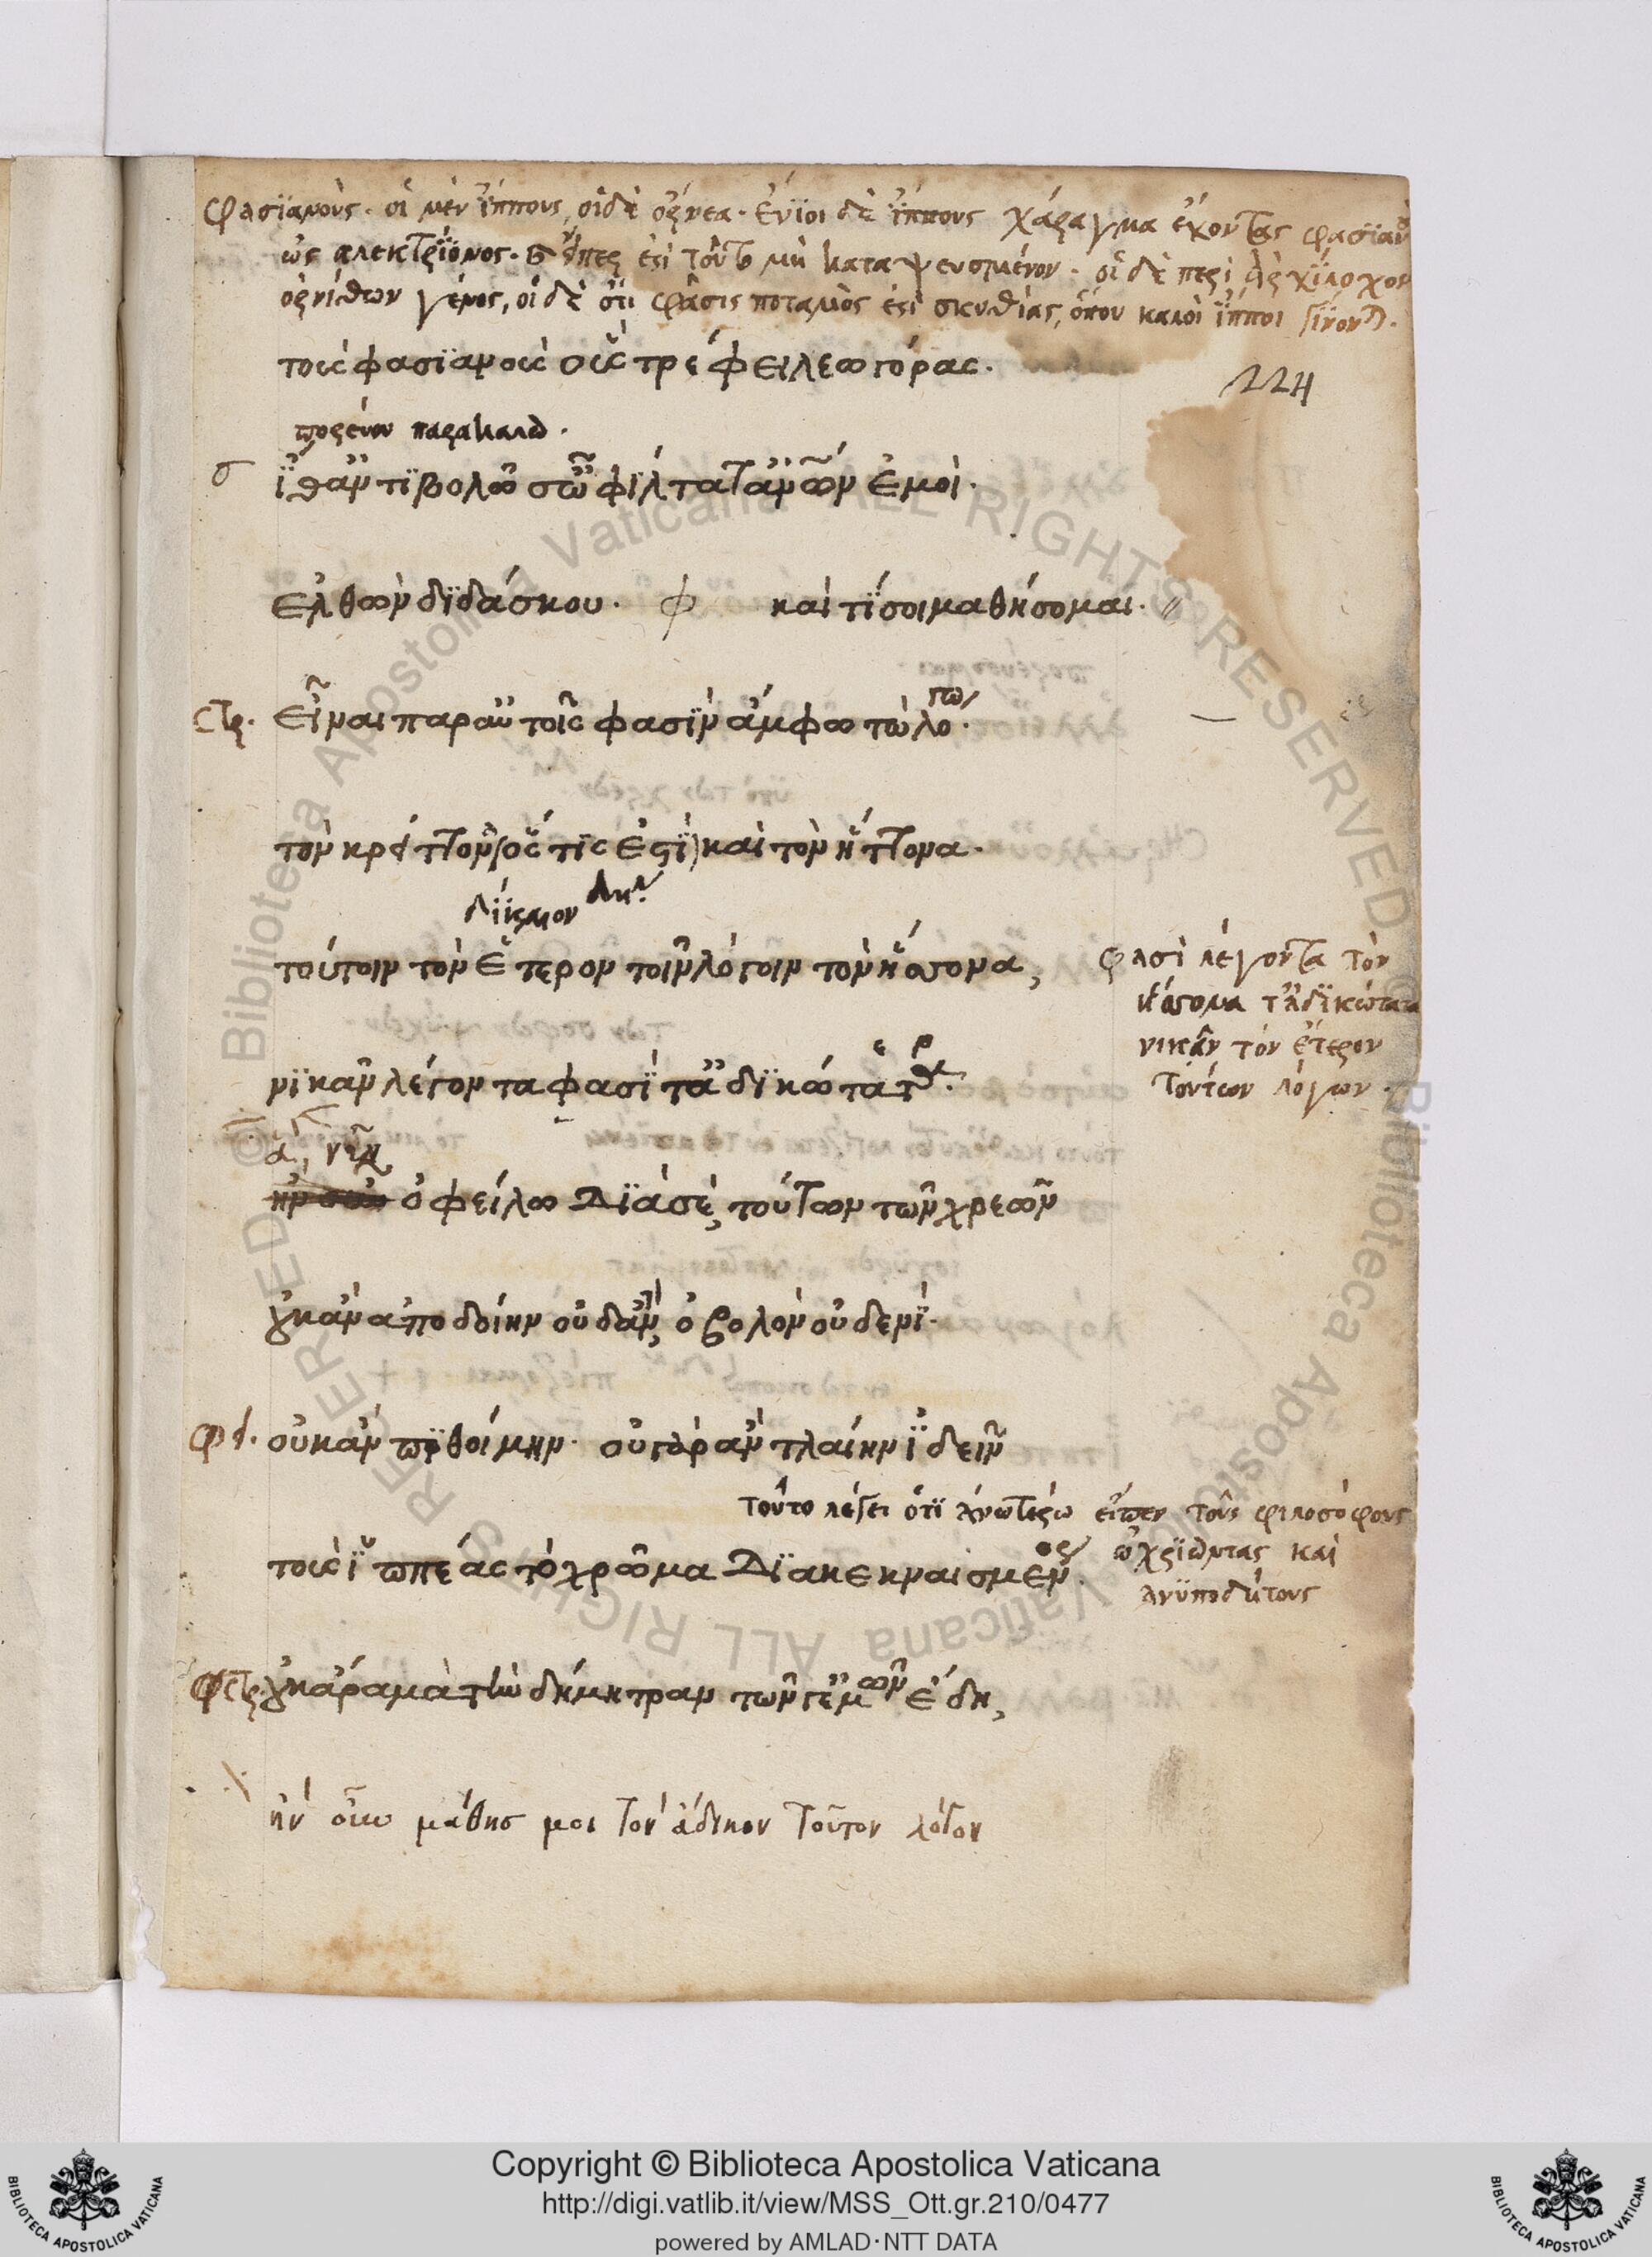 φασϊανοὺς. οἱ μὲν ἵππους, οἱ δὲ ὄρνεα. ἔνϊοι δὲ ἵππους χάραγμα ἔχοντας φασϊαν
ὡς ἀλεκτρϊόνος. ἐστὶ τοῦτο μὴ καταψευσμένον. οἱ δὲ περὶ Ἀρχίλοχον
ὀρνίθων γένος, οἱ δὲ ὅτι φᾶσις ποταμὸς ἐστὶ σκυθίας, ὅπου καλοὶ ἵπποι γίνονται.
τοὺς φασϊανοὺς οὓς τρέφει λεωγόρας.
224
πορεύου παρακαλῶ.
σ ἴθ ἀντϊβολῶ σ ὦ φίλτατ ἀνῶν ἐμοὶ.
ἐλθὼν δϊδάσκου. φ καὶ τί σοι μαθήσομαι.
στρ. εἶναι παρ αὐτοῖς φασϊν ἄμφω τὼ λόγω.
τὸν κρείττον ὅς τϊς ἐστϊ καὶ τὸν ἥττονα.
Δίκαιον
τούτοιν τὸν ἕτερον τοῖν λόγοιν τὸν ἥσσονα,
φασὶ λέγοντα τὸν
ἥσσονα τἀδϊκώτατα
νικᾶν τὸν ἕτερον
τούτων λόγων.
νϊκᾶν λέγοντα φασϊ τἀδϊκώτατερα.
ἃ νῦν
ὀφείλω Δϊὰ σὲ, τούτων τῶν χρεῶν
οὐκ ἂν ἀποδοίην οὐδ ἂν, ὀβολὸν οὐδενϊ.
φι. οὐκ ἂν πϊθοίμην. οὐ γὰρ ἂν τλαίην ἰδεῖν
τοῦτο λέγει ὅτϊ ἀνωτέρω εἶπεν τοὺς φιλοσόφους
ὠχρϊῶντας καὶ
ἀνϋποδήτους
τοὺς ἱππέας τὸ χρῶμα Δϊακεκναισμένος.
στρ. οὐκ ἄρα μὰ τὴν δήμητραν τῶν γ ἐμῶν ἔδη,
ἢν οὖν μάθης μοι τὸν ἄδικον τοῦτον λόγον
Copyright © Biblioteca Apostolica Vaticana
http://digi.vatlib.it/view/MSS_Ott.gr.210/0477
powered by AMLAD·NTT DATA